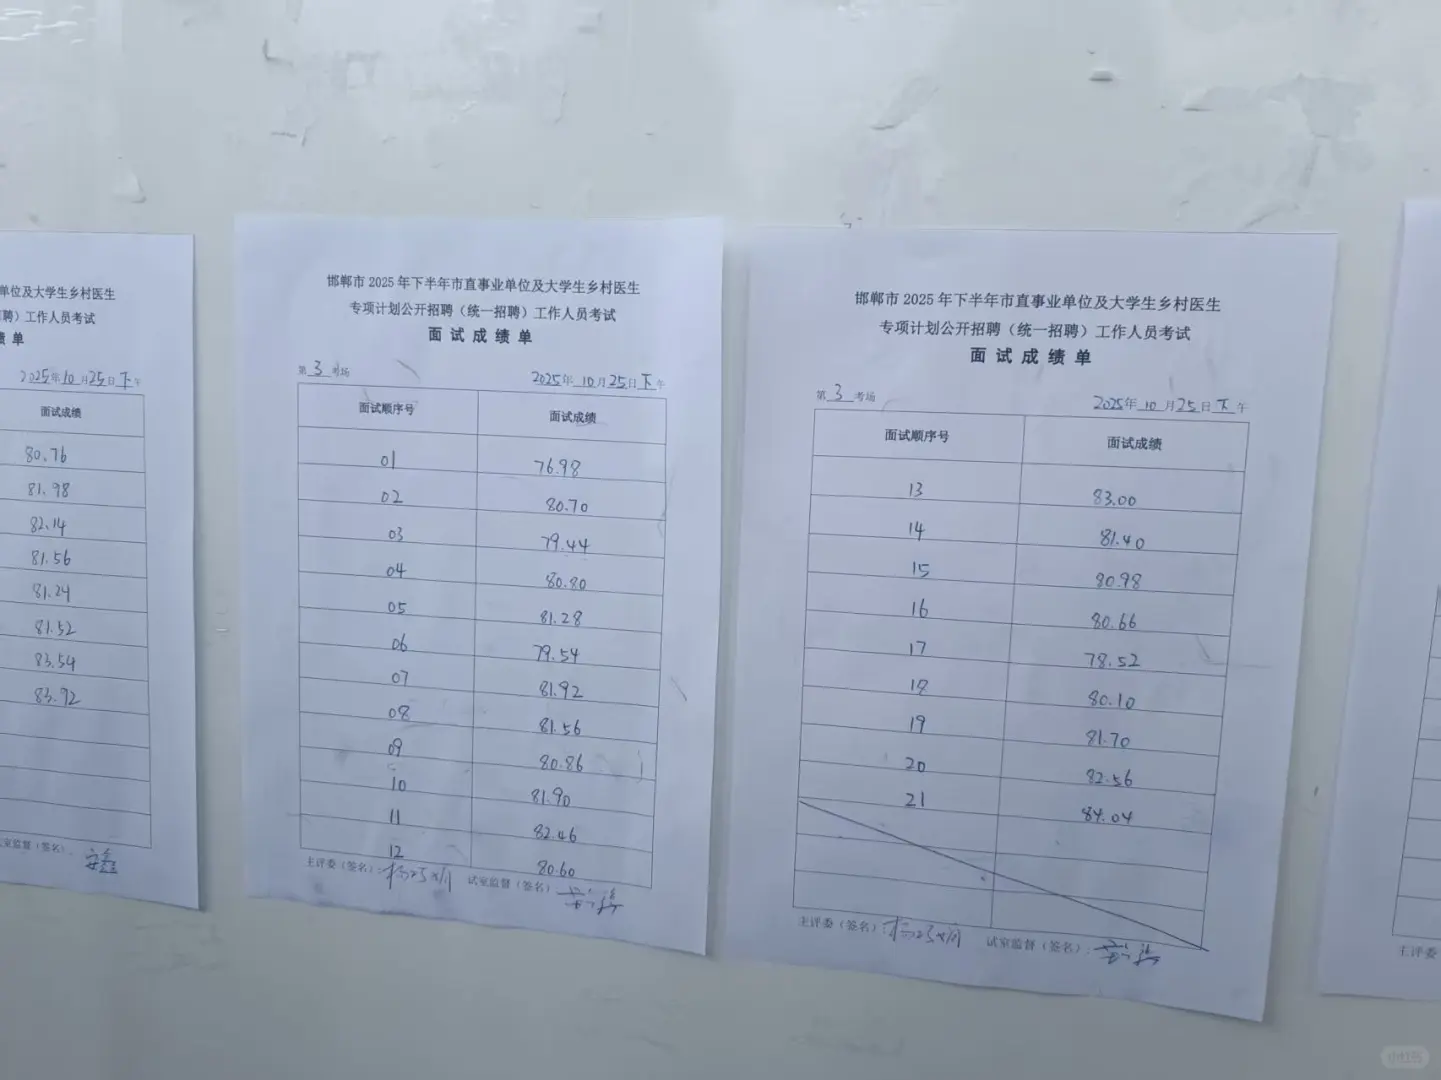 单位及大学生乡村医生
聘）工作人员考试
绩 单
2025年10月25日下午
面试成绩
80.76
81.98
82.14
81.56
81.24
81.52
83.54
83.92
室监督（签名）
邯郸市 2025 年下半年市直事业单位及大学生乡村医生
专项计划公开招聘（统一招聘）工作人员考试
面 试 成 绩 单
第 3 考场 2025年 10 月 25 日 下 午
面试顺序号 面试成绩
01 76.98
02 80.70
03 79.44
04 80.80
05 81.28
06 79.54
07 81.92
08 81.56
09 80.86
10 81.90
11 82.46
12 80.60
主评委（签名）： 试室监督（签名）
邯郸市 2025 年下半年市直事业单位及大学生乡村医生
专项计划公开招聘（统一招聘）工作人员考试
面 试 成 绩 单
第 3 考场 2025年 10 月 25 日 下 午
面试顺序号 面试成绩
13 83.00
14 81.40
15 80.98
16 80.66
17 78.52
18 80.10
19 81.70
20 82.56
21 84.04
主评委（签名）： 试室监督（签名）：
主评委
小红书